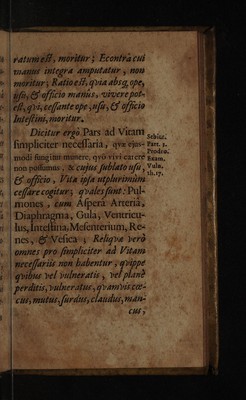 ratum est, moritur; Econtrà cui
manus integra amputatur, non
moritur; Ratio est, quia absq, ope,
usu, & officio manûs, vivere pot-
est, qui, cessante ope, usu, & officio
Intestini, moritur.
Dicitur ergò Pars ad Vitam
simpliciter necessaria, quæ ejus-
modi fungitur munere, quô vivi carere
non possumus, & cujus sublatô usu,
& officio, Vita ipsa utplurimùm
cessare cogitur; quales sunt: Pul-
mones, cum Asperâ Arteriâ,
Diaphragma, Gula, Ventricu-
lus, Intestina, Mesenterium, Re-
nes, & Vesica; Reliquæ verò
omnes pro simpliciter ad Vitam
necessariis non habentur, quippe
quibus vel vulneratis, vel planè
perditis, vulneratus, quamvis cœ-
cus, mutus, surdus, claudus, man-
cus,
Part. 3.
Prodon.
Exam.
Vuln.
th. 17.